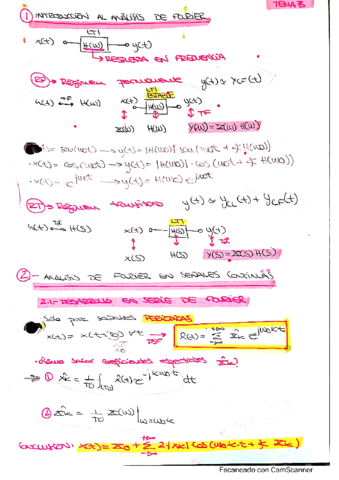 TEMA 3
① INTRODUCCIÓN AL ANÁLISIS DE FOURIER
LTI
x(t) → H(ω) → y(t)
→ RESPUESTA EN FRECUENCIA
RP → RÉGIMEN permanente y(t) ≃ y_CF(t)
h(t) ↔ H(ω) x(t) → H(ω) → y(t)
LTI
ESTABLE
TF
X(ω) H(ω) Y(ω) = X(ω) H(ω)
= sen(ω₀t) → y(t) = |H(ω₀)| sen(ω₀t + ∡ H(ω₀))
· x(t) = cos(ω₀t) → y(t) = |H(ω₀)| · cos(ω₀t + ∡ H(ω₀))
· x(t) = e^{jω₀t} → y(t) = H(ω₀) e^{jω₀t}
RT → RÉGIMEN transitorio y(t) ≃ y_CL(t) + y_CF(t)
LTI
h(t) ↔ H(S) x(t) → H(S) → y(t)
X(S) H(S) Y(S) = X(S) H(S)
② - ANÁLISIS DE FOURIER EN SEÑALES CONTINUAS
2.1.- DESARROLLO EN SERIE DE FOURIER
Solo para señales PERIÓDICAS
x(t) = x(t+T₀) ∀t DSF x̂(t) = Σ X̂k e^{jω₀kt}
coeficientes espectrales X̂k?
① X̂k = 1/T₀ ∫(T₀) x(t) e^{-jkω₀t} dt
② X̂k = 1/T₀ X(ω)|ω=ω₀k
CONCLUSIÓN: x(t) = X₀ + Σ 2|Xk| cos(ω₀kt + ∡ X̂k)
Escaneado con CamScanner